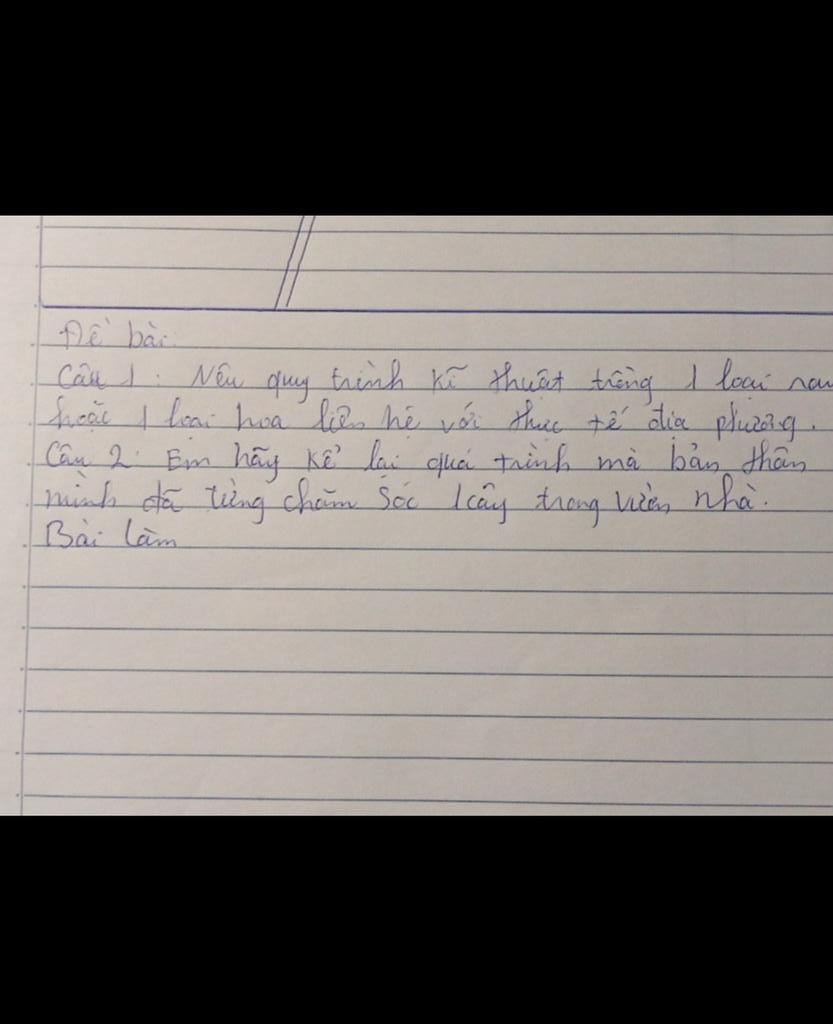 Đề bài:
Câu 1: Nêu quy trình kĩ thuật trồng 1 loại rau
hoặc 1 loại hoa liên hệ với thực tế địa phương.
Câu 2: Em hãy kể lại quá trình mà bản thân
mình đã từng chăm sóc 1 cây trong vườn nhà.
Bài làm